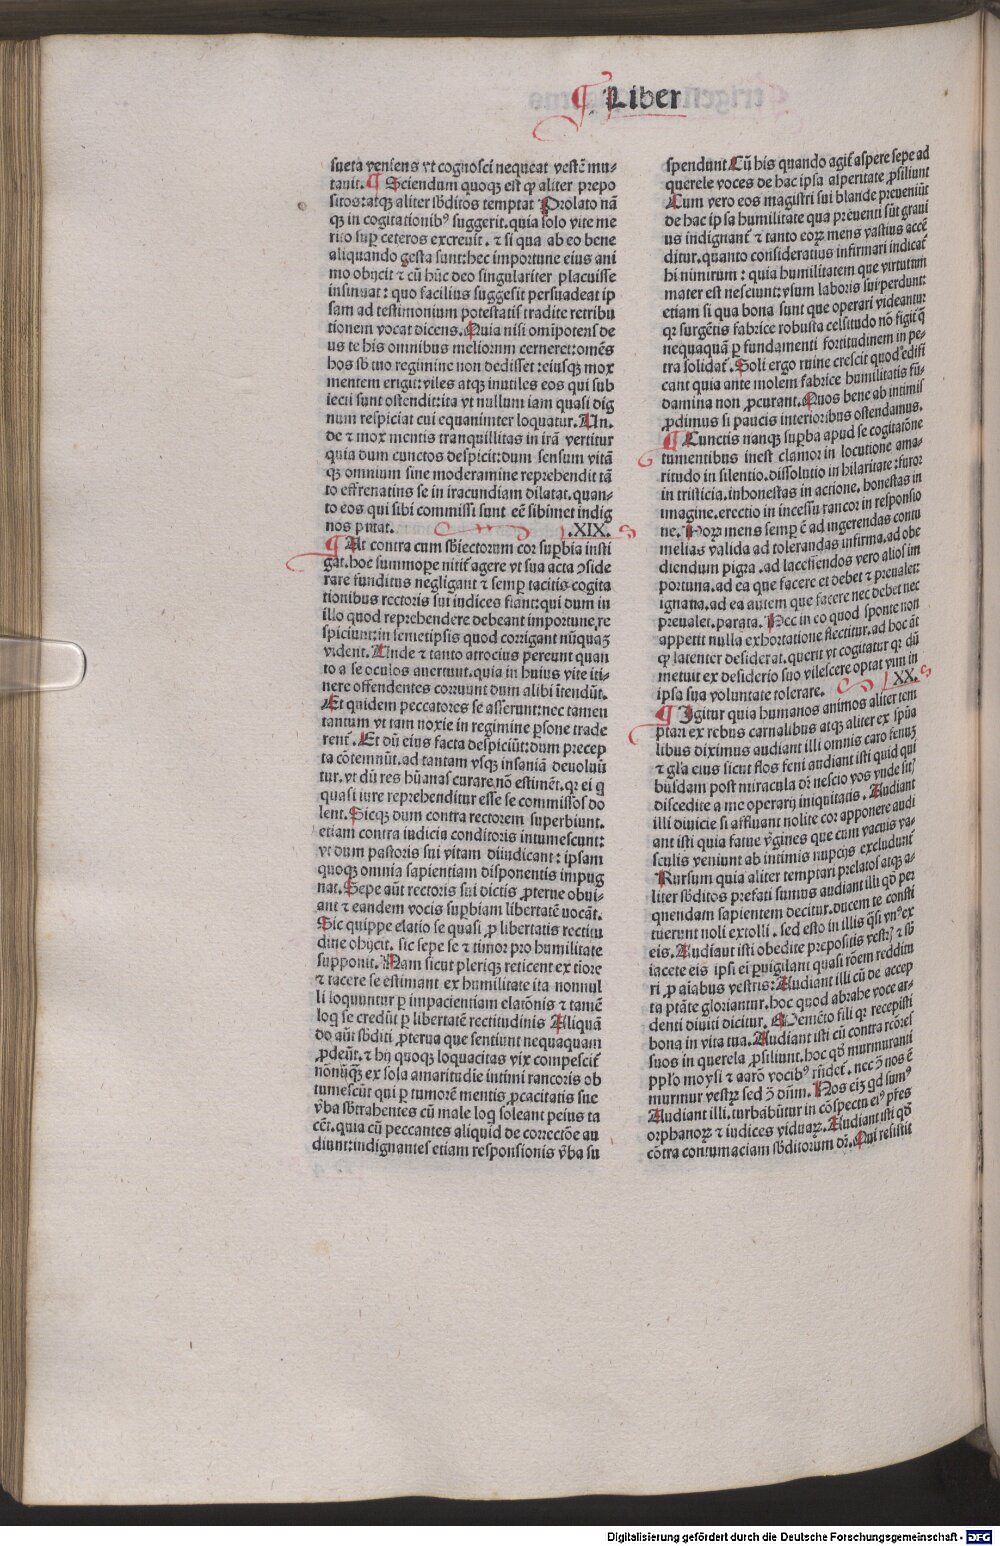 ¶ Liber
sueta veniens vt cognosci nequeat vestē mu-
tauit. ¶ Sciendum quoqꝫ est ꝙ aliter prepo
sitos: atqꝫ aliter sb̄ditos temptat Prolato nā
qꝫ in cogitationibꝰ suggerit. quia solo vite me
rito suꝑ ceteros excreuit. ⁊ si qua ab eo bene
aliquando gesta sunt: hec importune eius ani
mo obijcit ⁊ cū hūc deo singulariter placuisse
insinuat: quo facilius suggesit persuadeat ip
sam ad testimonium potestatis tradite retribu
tionem vocat dicens. Quia nisi om̄ipotens de
us te his omnibus meliorum cerneret: omēs
hos sb̄ tuo regimine non dedisset: eiusqꝫ mox
mentem erigit: viles atqꝫ inutiles eos qui sub
iecti sunt ostendit: ita vt nullum iam quasi dig
num respiciat cui equanimiter loquatur. Un.
de ⁊ mox mentis tranquillitas in irā vertitur
quia dum cunctos despicit: dum sensum vitā
qꝫ omnium sine moderamine reprehendit tā
to effrenatius se in iracundiam dilatat. quan-
to eos qui sibi commissi sunt eē sibimet indig
nos putat. .XIX.
¶ At contra cum sb̄iectorum cor suꝑbia insti
gat. hoc summoꝑe nitit̄ agere vt sua acta ꝯside
rare funditus negligant ⁊ semꝑ tacitis cogita
tionibus rectoris sui iudices fiant: qui dum in
illo quod reprehendere debeant importune, re
spiciunt: in semetipsis quod corrigant nūquaꝫ
vident. Unde ⁊ tanto atrocius pereunt quan
to a se oculos auertunt. quia in huius vite iti-
nere offendentes corruunt dum alibi ītendūt.
Et quidem peccatores se asserunt: nec tamen
tantum vt tam noxie in regimine ꝑsone trade
rent̄. Et dū eius facta despiciūt: dum precep
ta cōtemnūt. ad tantam vsqꝫ insaniā deuoluū
tur. vt dū res hūanas curare nō estimēt. qꝛ ei ꝗ
quasi iure reprehenditur esse se commissos do
lent. Sicqꝫ dum contra rectorem superbiunt.
etiam contra iudicia conditoris intumescunt:
vt dum pastoris sui vitam diiudicant: ipsam
quoqꝫ omnia sapientiam disponentis impug
nat. Sepe aūt rectoris sui dictis ꝓterue obui-
ant ⁊ eandem vocis suꝑbiam libertatē uocāt.
Sic quippe elatio se quasi ꝓ libertatis rectitu
dine obijcit. sic sepe se ⁊ timor pro humilitate
supponit. Nam sicut pleriqꝫ reticent ex tiore
⁊ tacere se estimant ex humilitate ita nonnul
li loquuntur ꝑ impacientiam elatōnis ⁊ tamē
loqͥ se credūt ꝑ libertatē rectitudinis Aliquā
do aūt sb̄diti ꝓterua que sentiunt nequaquam
ꝓdeūt. ⁊ hij quoqꝫ loquacitas vix compescit̄
nōnūqꝫ ex sola amaritudie intimi rancoris ob
tumescūt qui ꝑ tumorē mentis ꝓcacitatis sue
v̄ba sb̄trahentes cū male loqͥ soleant peius ta
cēt. quia cū peccantes aliquid de correctōe au
diunt: indignantes etiam responsionis v̄ba su
spendunt Cū his quando agit̄ aspere sepe ad
querele voces de hac ipsa asperitate ꝓsiliunt
Cum vero eos magistri sui blande preueniūt
de hac ipsa humilitate qua preuenti sūt graui
us indignant̄ ⁊ tanto eoꝝ mens vastius accē
ditur. quanto consideratius infirmari indicat̄
hi nimirum: quia humilitatem que virtutum
mater est nesciunt: vsum laboris sui perdunt:
etiam si qua bona sunt que operari videantur
qꝛ surgētis fabrice robusta celsitudo nō figit̄ ꝙ
nequaquā ꝑ fundamenti fortitudinem in pe-
tra solidat̄. Soli ergo ruine crescit quod edifi
cant quia ante molem fabrice humilitatis fū-
damina non ꝓcurant. Quos bene ab intimis
ꝓdimus si paucis interioribus ostendamus.
¶ Cunctis nanqꝫ suꝑba apud se cogitatōne
tumentibus inest clamor in locutione ama-
ritudo in silentio. dissolutio in hilaritate: furor
in tristicia. inhonestas in actione. honestas in
imagine. erectio in incessu rancor in responsio
ne. Hoꝝ mens semꝑ ē ad ingerendas contu
melias valida ad tolerandas infirma. ad obe
diendum pigra. ad lacessendos vero alios im
portuna. ad ea que facere et debet ⁊ preualet:
ignaua. ad ea autem que facere nec debet nec
preualet. parata. Hec in eo quod sponte non
appetit nulla exhortatione flectitur. ad hoc āt
ꝙ latenter desiderat. querit vt cogitatur qꝛ dū
metuit ex desiderio suo vilescere optat vim in
ipsa sua voluntate tolerare. .XX.
¶ Igitur quia humanos animos aliter tem
ptari ex rebus carnalibus atqꝫ aliter ex spūa
libus diximus audiant illi omnis caro fenuꝫ
⁊ gl̄a eius sicut flos feni audiant isti quid qui
busdam post miracula dr̄ nescio vos vnde sitꝭ
discedite a me operarij iniquitatis. Audiant
illi diuicie si affluant nolite cor apponere audi
ant isti quia fatue v̄gines que cum vacuis va-
sculis veniunt ab intimis nupcijs excludunt̄
Rursum quia aliter temptari prelatos atqꝫ a-
liter sb̄ditos prefati sumus audiant illi qđ per
quendam sapientem decitur. ducem te consti
tuerunt noli extolli. sed esto in illis qͣsi vnꝰ ex
eis. Audiant isti obedite prepositis vestrꝭ ⁊ sb̄
iacete eis ipsi ei ꝑuigilant quasi rōem reddituri
ri ꝓ aīabus vestris: Audiant illi cū de accep
ta ptāte gloriantur. hoc quod abrahe voce ar-
denti diuiti dicitur. Memēto fili qꝛ recepisti
bona in vita tua. Audiant isti cū contra rcōres
suos in querela ꝓsiliunt. hoc qđ murmuranti
pplo moysi ⁊ aarō vocibꝰ rn̄det̄. nec ꝯ nos ē
murmur vestꝝ sed ꝯ dn̄m. Nos eiꝫ qd sumꝰ
Audiant illi. turbabūtur in cōspectu eiꝰ pr̄es
orphanoꝝ ⁊ iudices viduaꝝ. Audiant isti qđ
cōtra contumaciam sb̄ditorum dr̄. Qui resistit
Digitalisierung gefördert durch die Deutsche Forschungsgemeinschaft - DFG